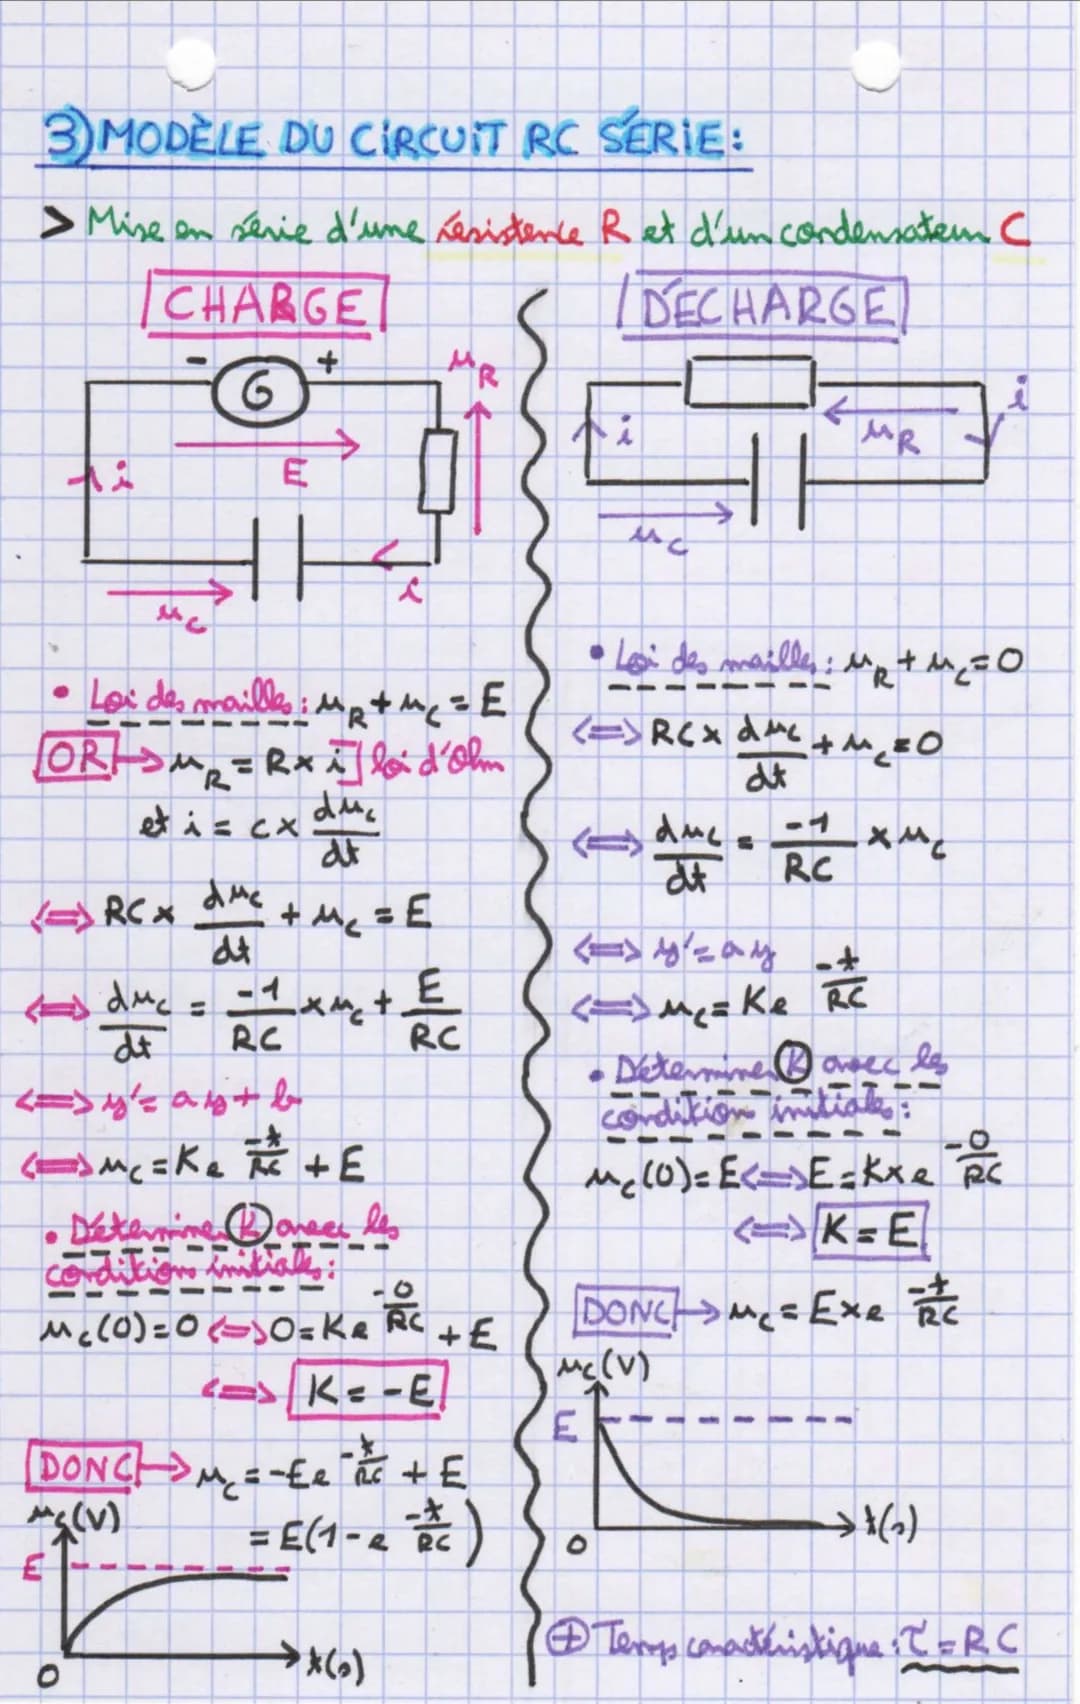 3) MODÈLE DU CIRCUIT RC SÉRIE :
> Mise en série d'une résistence R et d'un condensateur C
CHARGE
- +
G
E
i
uR
i
uC
• Loi des mailles : uR + uC = E
OR → uR = R × i ] loi d'Ohm
et i = C × duC/dt
⟺ RC × duC/dt + uC = E
⟺ duC/dt = -1/RC × uC + E/RC
⟺ y' = ay + b
⟺ uC = Ke^(-t/RC) + E
• Déterminer K avec les
conditions initiales :
uC(0) = 0 ⟺ 0 = Ke^(-0/RC) + E
⟺ K = -E
DONC → uC = -Ee^(-t/RC) + E
= E(1 - e^(-t/RC))
uC(V)
E
0
t(s)
DÉCHARGE
i
i
uR
uC
• Loi des mailles : uR + uC = 0
⟺ RC × duC/dt + uC = 0
⟺ duC/dt = -1/RC × uC
⟺ y' = ay
⟺ uC = Ke^(-t/RC)
• Déterminer K avec les
condition initiales :
uC(0) = E ⟺ E = K × e^(-0/RC)
⟺ K = E
DONC → uC = E × e^(-t/RC)
uC(V)
E
0
t(s)
⊕ Temps caractéristique : τ = RC